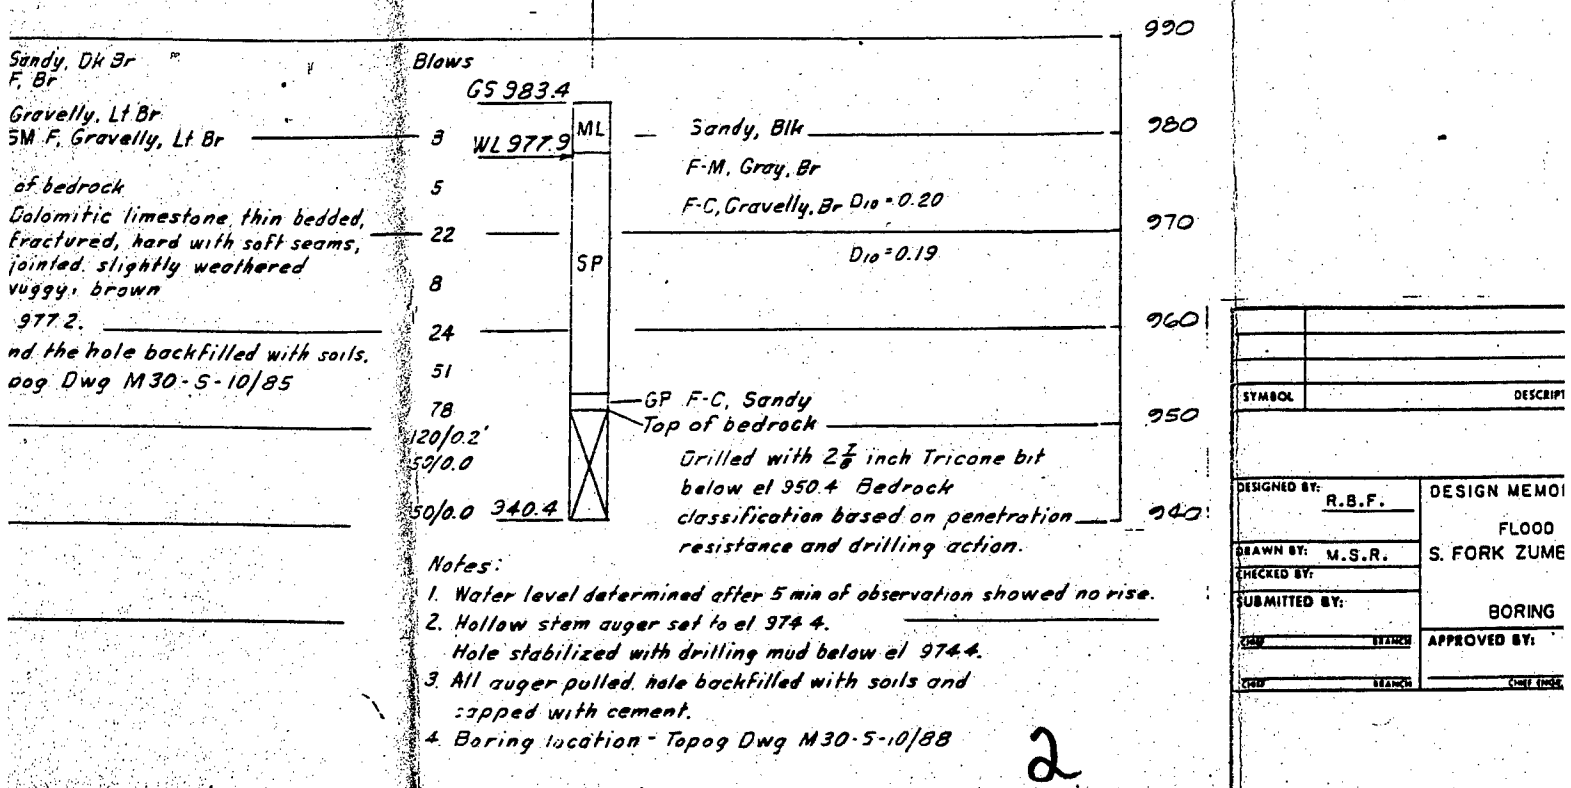 990
Sandy, Dk Br
F, Br
Gravelly, Lt Br
SM F, Gravelly, Lt Br
of bedrock
Dolomitic limestone, thin bedded,
fractured, hard with soft seams,
jointed, slightly weathered
vuggy, brown
977.2.
nd the hole backfilled with soils.
pog Dwg M30-S-10/85
Blows
GS 983.4
3
WL 977.9
ML
Sandy, Blk
980
F-M, Gray, Br
5
F-C, Gravelly, Br D10 = 0.20
22
970
SP
D10 = 0.19
8
24
960
51
GP F-C, Sandy
78
Top of bedrock
950
120/0.2'
50/0.0
Drilled with 2 7/8 inch Tricone bit
below el 950.4 Bedrock
50/0.0 940.4
classification based on penetration
940
resistance and drilling action.
Notes:
1. Water level determined after 5 min of observation showed no rise.
2. Hollow stem auger set to el 974.4.
Hole stabilized with drilling mud below el 974.4.
3. All auger pulled, hole backfilled with soils and
capped with cement.
4. Boring location - Topog Dwg M30-S-10/88
2
SYMBOL
DESCRIPT
DESIGNED BY:
R.B.F.
DRAWN BY: M.S.R.
CHECKED BY:
SUBMITTED BY:
CHIEF BRANCH
CHIEF BRANCH
DESIGN MEMO
FLOOD
S. FORK ZUMB
BORING
APPROVED BY:
CHIEF ENGR.